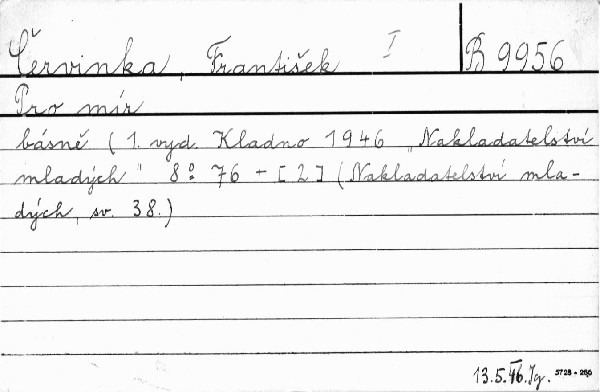 Červinka, František I B 9956
Pro mír
básně (1. vyd. Kladno 1946 „Nakladatelství
mladých" 8° 76 - [2] (Nakladatelství mla-
dých, sv. 38.)
13.5.46. Jg. 5728-266